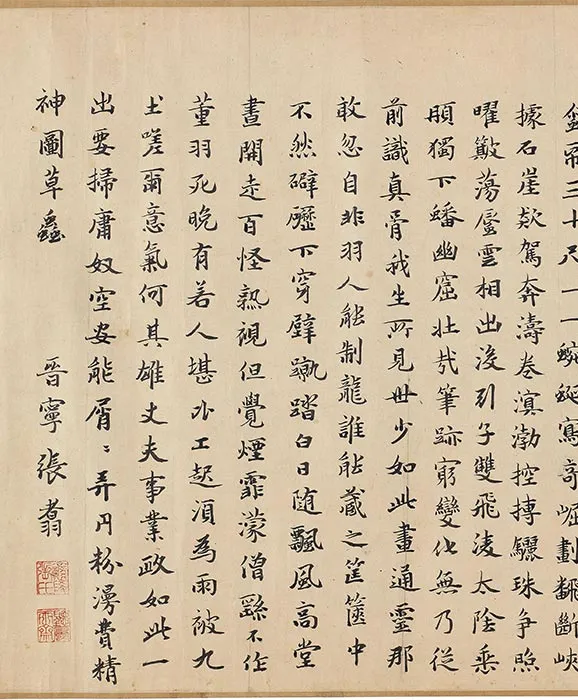 帋三十尺一一蜿蜒寫奇崛劃斷峽
據石崖欻駕奔濤卷滇渤控摶驪珠爭照
曜蕩蜃雲相出沒引子雙飛淩太陰垂
獨下蟠幽窟壯哉筆跡窮變化無乃從
前識真骨我生所見世少如此畫通靈那
敢忽自非羽人能制龍誰能藏之筐篋中
不然礔礰下穿壁蹴踏白日随飄風高堂
晝開走百怪熟視但覺煙霏濛僧繇不作
董羽死晚有若人堪工起須為雨破九
土嗟爾意氣何其雄丈夫事業政如此一
出要掃庸奴空安能屑〻弄丹粉漫費精
神圖草蟲
晉寧張翥